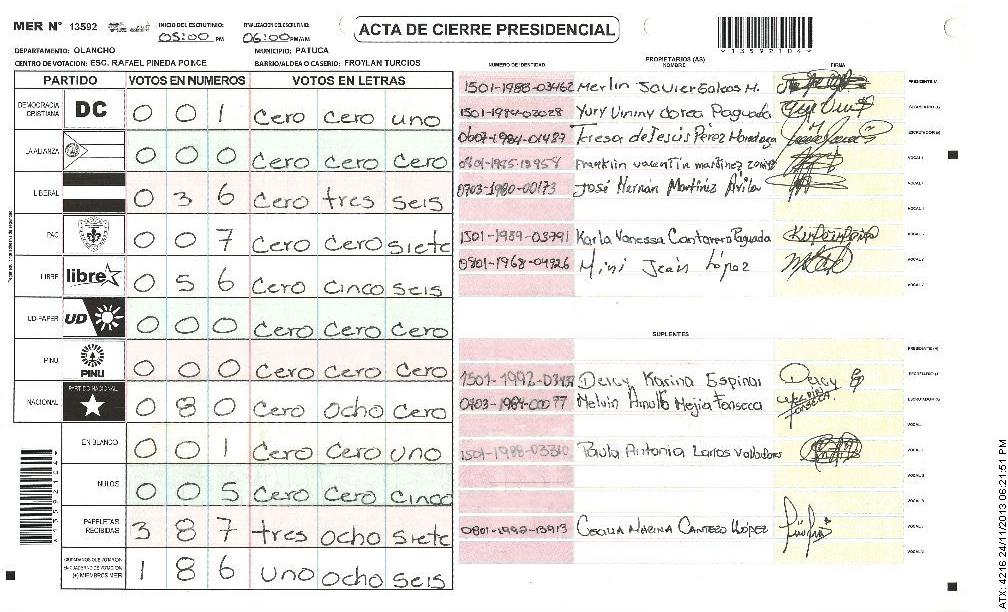 MER N° 13592
INICIO DEL ESCRUTINIO: 05:00 PM
FINALIZACION DEL ESCRUTINIO: 06:00 PM/AM
ACTA DE CIERRE PRESIDENCIAL
DEPARTAMENTO: OLANCHO
MUNICIPIO: PATUCA
CENTRO DE VOTACION: ESC. RAFAEL PINEDA PONCE
BARRIO/ALDEA O CASERIO: FROYLAN TURCIOS
PARTIDO VOTOS EN NUMEROS VOTOS EN LETRAS
DEMOCRACIA CRISTIANA DC 0 0 1 Cero Cero uno
LA ALIANZA 0 0 0 Cero Cero Cero
LIBERAL 0 3 6 Cero tres seis
PAC 0 0 7 Cero Cero siete
LIBRE libre 0 5 6 Cero cinco seis
UD-FAPER UD 0 0 0 Cero Cero Cero
PINU PINU 0 0 0 Cero Cero Cero
NACIONAL PARTIDO NACIONAL 0 8 0 Cero Ocho Cero
EN BLANCO 0 0 1 Cero Cero uno
NULOS 0 0 5 Cero Cero cinco
PAPELETAS RECIBIDAS 3 8 7 tres ocho siete
(+) MIEMBROS MER 1 8 6 uno ocho seis
PROPIETARIOS (AS)
NUMERO DE IDENTIDAD NOMBRE FIRMA
1501-1988-03462 Merlin Javier M.
1501-1984-03028 Yury Vinny Paguada
0607-1984-01487 Teresa de Jesús Pérez
Franklin valentín martínez
0703-1980-00173 José Hernán Martínez Avila
1501-1989-03791 Karla Vanessa Cantarero Paguada
0801-1968-04926 Mini Jean López
SUPLENTES
Karina Espinal
0703-1984-00077 Melvin Arnulfo Mejia Fonseca
Paula Antonia
0801-1992-13913 CECILIA MARINA
ATX: 4216 24/11/2013 06:21:51 PM